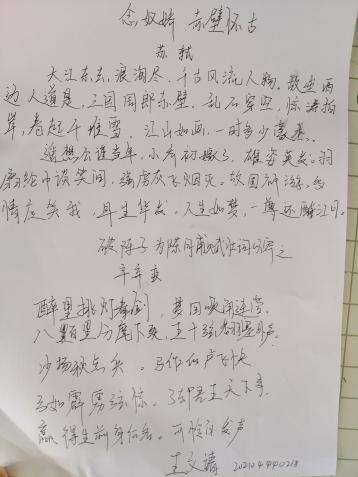 念奴娇 赤壁怀古
苏轼
大江东去,浪淘尽,千古风流人物。故垒西
边人道是,三国周郎赤壁。乱石穿空,惊涛拍
岸,卷起千堆雪。江山如画,一时多少豪杰。
遥想公谨当年,小乔初嫁了,雄姿英发。羽
扇纶巾谈笑间,强虏灰飞烟灭。故国神游,多
情应笑我,早生华发。人生如梦,一尊还酹江月。
破阵子 为陈同甫赋壮词以寄之
辛弃疾
醉里挑灯看剑,梦回吹角连营。
八百里分麾下炙,五十弦翻塞外声
沙场秋点兵。马作的卢飞快
弓如霹雳弦惊。了却君王天下事
赢得生前身后名。可怜白发生
王文清 202104440218